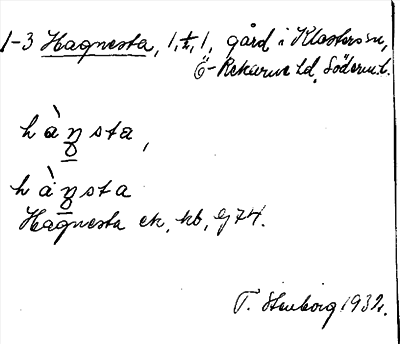 1-3 Hagnesta, 1, ½, 1, gård i Klosters sn,
Ö-Rekarne hd, Söderm. l.
hàŋsta,
hàŋsta
Hagnesta ek, kb, Gj74.
T. Stenborg 1932.